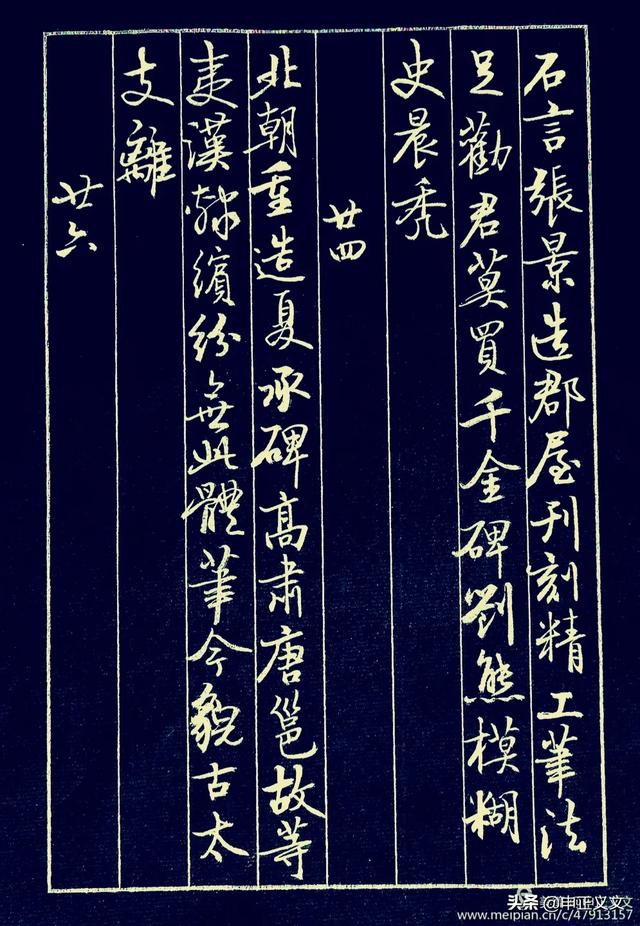 石言張景造郡屋刊刻精工筆法
足勸君莫買千金碑劉熊模糊
史晨禿
廿四
北朝重造夏承碑高肅唐邕故等
夷漢隸繽紛無此體筆今貌古太
支離
廿六
头条
www.meipian.cn/c/47913157